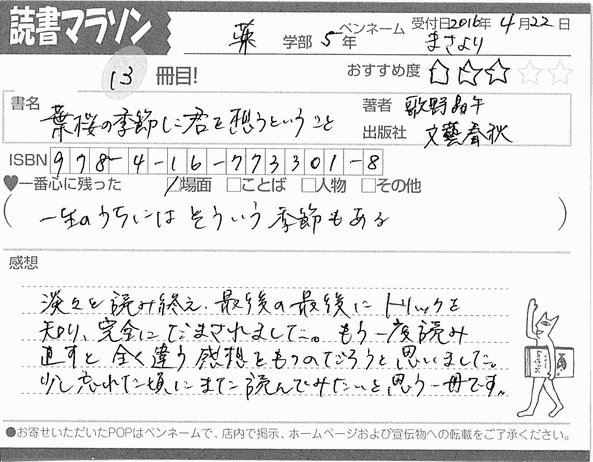 読書マラソン
薬 学部 5年 ペンネーム まさより 受付日2016年 4月22日
13 冊目! おすすめ度 ☆☆☆☆☆
書名 葉桜の季節に君を想うということ
著者 歌野晶午
出版社 文藝春秋
ISBN 978-4-16-773301-8
♥一番心に残った ☑場面 □ことば □人物 □その他
(一生のうちにはそういう季節もある)
感想
淡々と読み終え、最後の最後にトリックを
知り、完全にだまされました。もう一度読み
直すと全く違う感想をもつのだろうと思いました。
少し忘れた頃にまた読んでみたいと思う一冊です。
●お寄せいただいたPOPはペンネームで、店内で掲示、ホームページおよび宣伝物への転載をご了承ください。